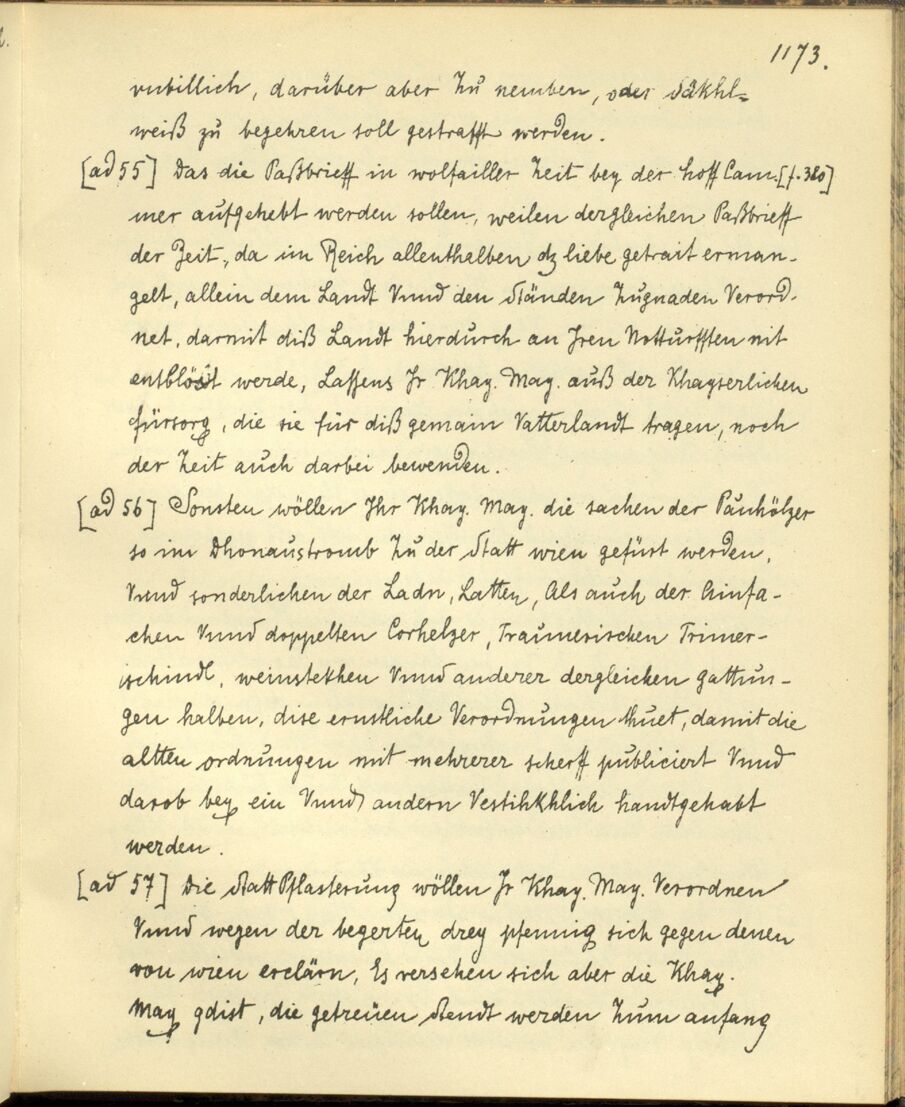 1173.
unbillich, darüber aber Zu nemben, oder Säkhl=
weiß zu begehren soll gestrafft werden.
[ad 55] Das die Paßbrieff in wolfailler Zeit bey der hoff Cam.[f. 380]
mer aufgehebt werden sollen, weilen dergleichen Paßbrieff
der Zeit, da im Reich allenthalben dz liebe getrait erman-
gelt, allein dem Landt Vnnd den Ständen Zugnaden Verord-
net, darmit diß Landt hierdurch an Jren Notturfften nit
entblöst werde, Lassens Jr Khay. May. auß der Khayserlichen
fürsorg, die sie für diß gemain Vatterlandt tragen, noch
der Zeit auch darbei bewenden.
[ad 56] Sonsten wöllen Ihr Khay. May. die sachen der Pauhölzer
so im Dhonaustromb Zu der Statt wien gefürt werden,
Vnnd sonderlichen der Ladn, Latten, Als auch der Ainfa-
chen Vnnd doppelten Corhelzer, Traumerischen Trimer-
ischindl, weinstekhen Vnnd anderer dergleichen gattun-
gen halben, dise ernstliche Verordnungen thuet, damit die
altten ordnungen mit mehrerer scherff publiciert Vnnd
darob bey ein Vnnd andern Vestihkhlich handtgehabt
werden.
[ad 57] Die StattPflasterung wöllen Jr Khay. May. Verordnen
Vnnd wegen der begerten drey pfennig sich gegen denen
von wien erclärn, Es versehen sich aber die Khay.
May gdist, die getreüen Stendt werden Zum anfang